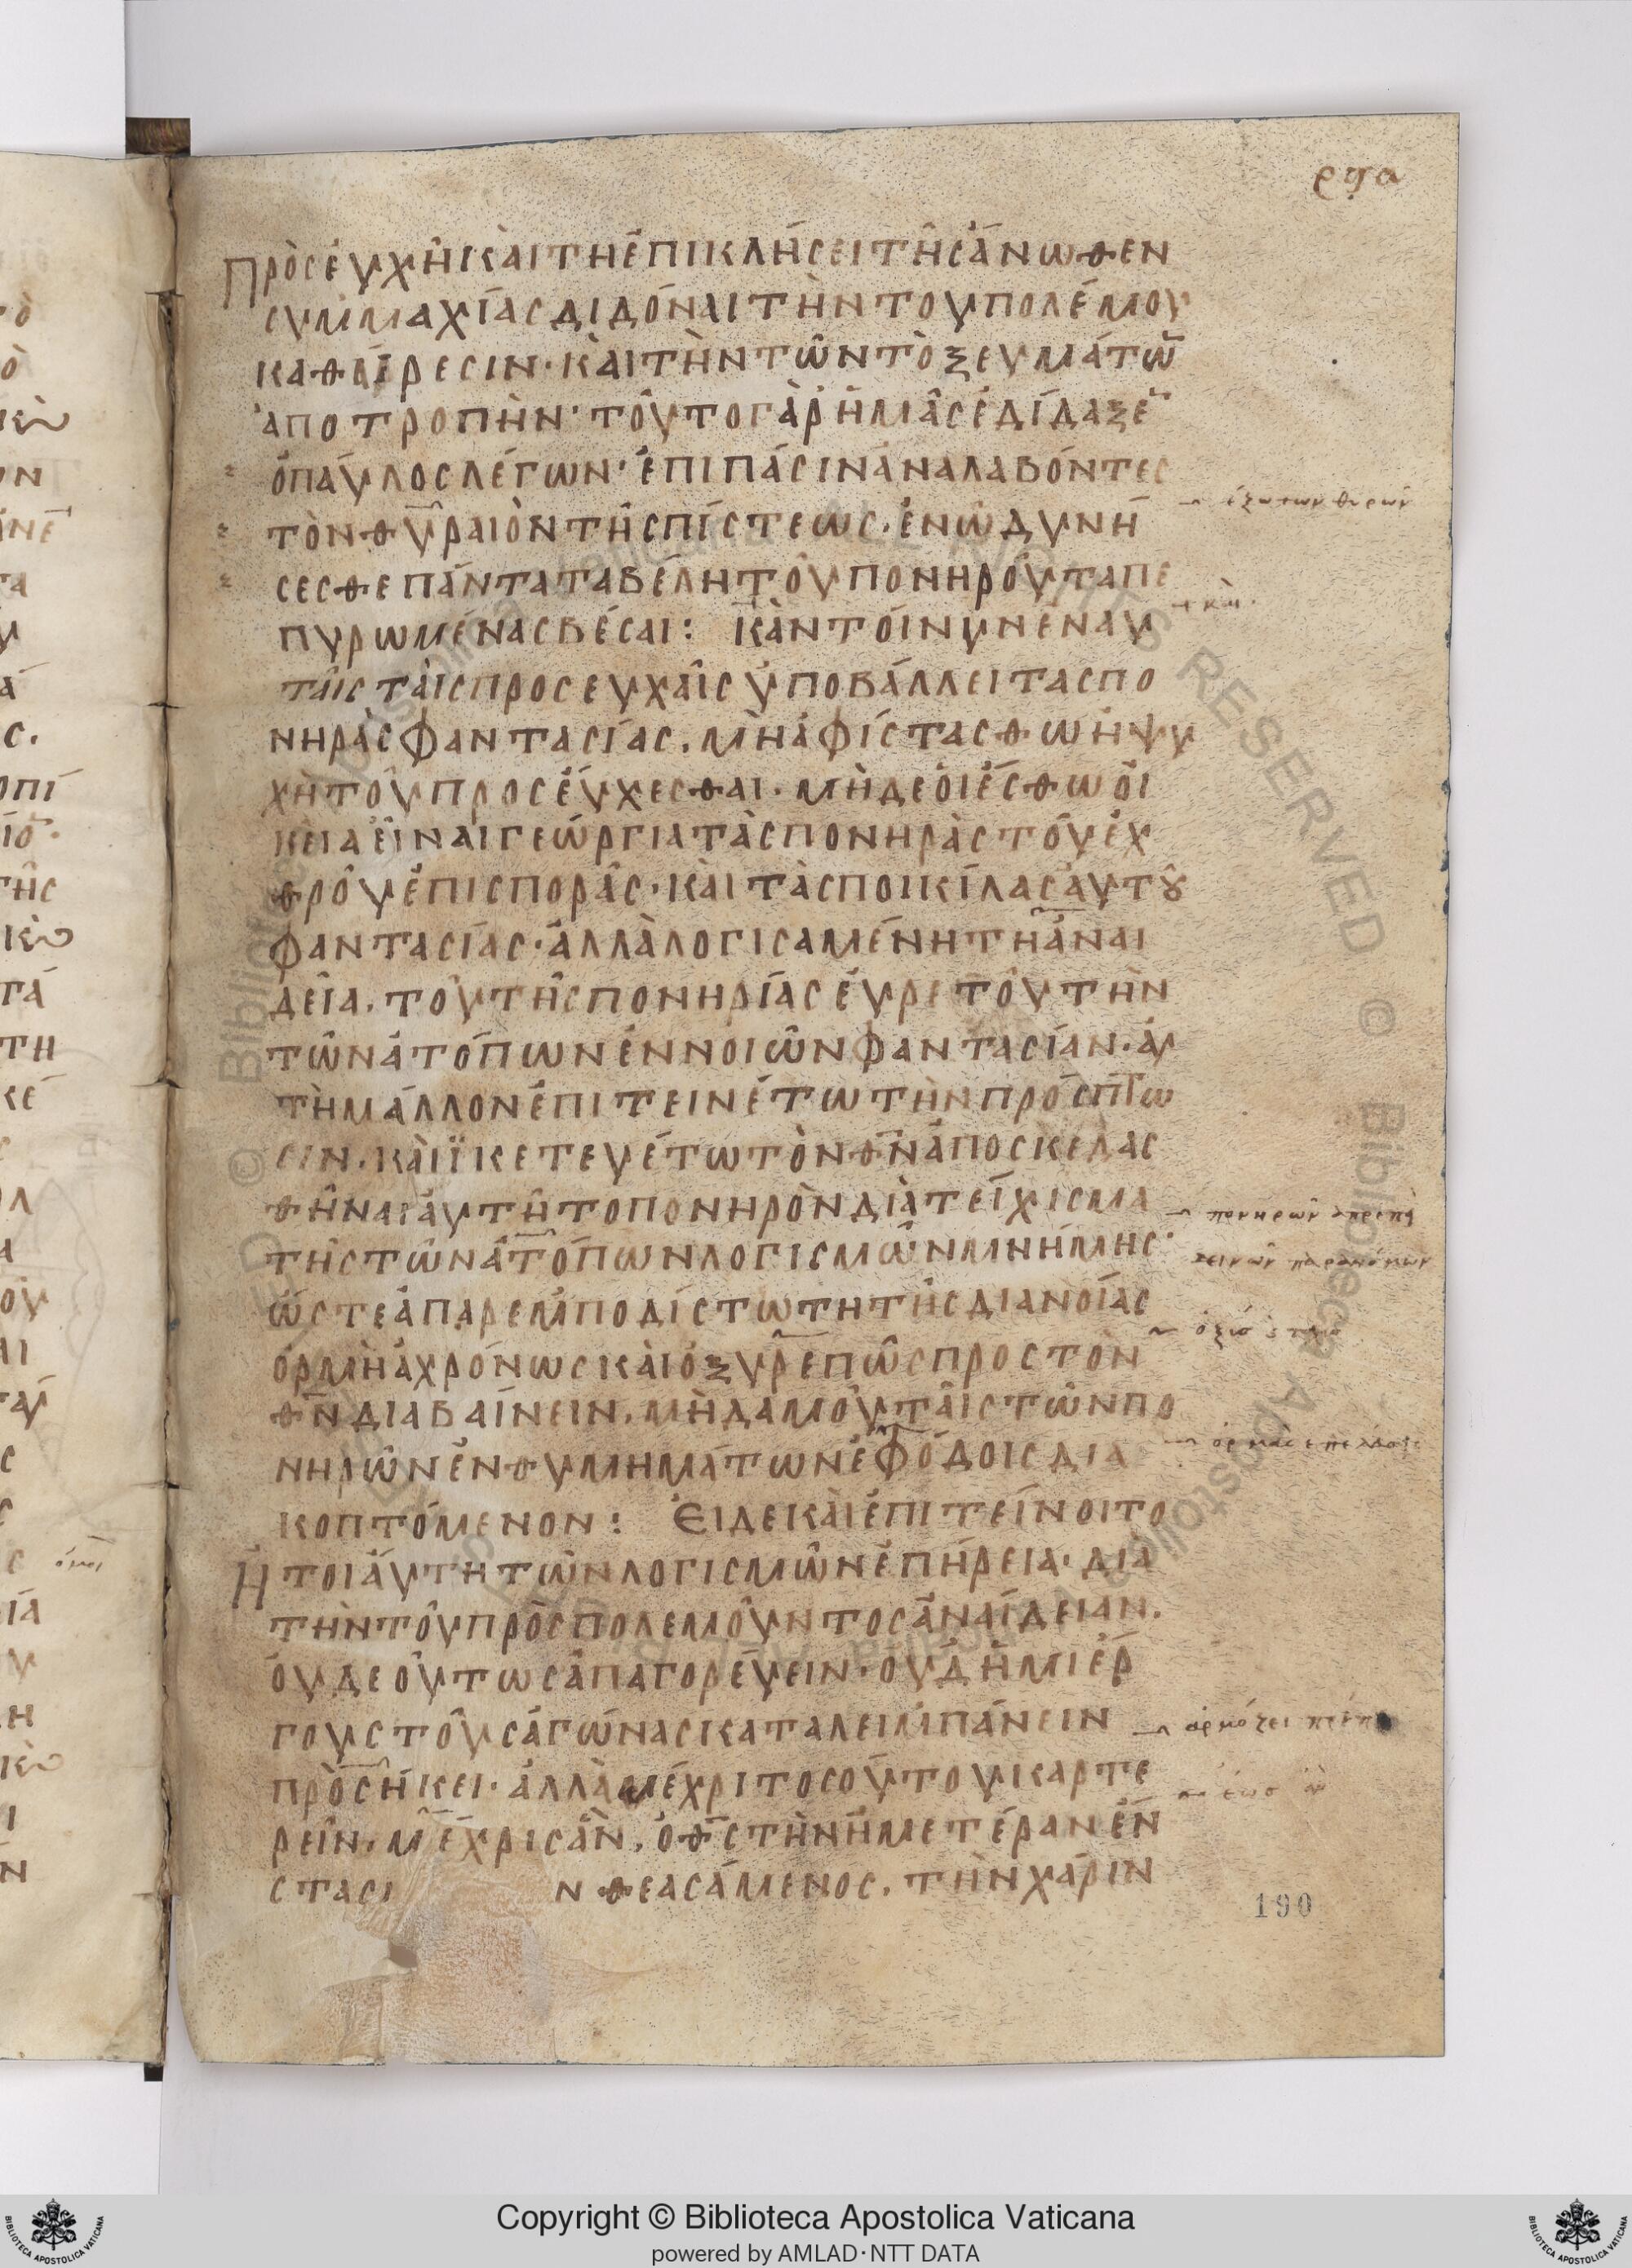 ρϟα
Πρὸσἐυχῆ κὰι τη ἐπικλήσει τῆς ἄνωθεν
συμμαχίας διδόναι τὴν του πολέμου
καθαίρεσιν· κὰι τὴν τῶν τὸξευμάτω̅
ἀποτροπὴν· τοῦτο γὰρ ἡμᾶς ἐδίδαξε̅
ὁ παῦλος λέγων· ἐπι πάσιν ἀναλαβόντες
τὸν θυραιὸν τῆς πίστεως. ἐν ὧ δυνή
σεσθε πάντα τα βέλη τοῦ πονηροῦ τα πε
πυρωμένα σβέσαι: κἂν τόινυν ἐν ἀυ
τᾶις τᾶις προσευχᾶις ὑποβάλλει τας πο
νηρὰς φαντασίας. μὴ ἀφίστασθω ἡ ψυ
χὴ τοῦ προσέυχεσθαι. μὴδε ὀιέσθω ὀι
κεια εἶναι γεώργια τὰς πονηρὰς τοῦ ἐχ
θροῦ ἐπισποράς· κὰι τὰς ποικίλας ἀυτȣ̂
φαντασίας. ἀλλὰ λογισαμένη τη ἀναι
δεία. του τῆς πονηρίας ἐυρετοῦ τὴν
τῶν ἀτόπων ἐννοιῶν φαντασίαν. ἀυ
τὴ μάλλον ἐπιτεινέτω τὴν πρόσπτω
σιν. κὰι ϊκετευέτω τὸν θ̅ν̅ ἀποσκεδας
θῆναι ἀυτῆ το πονηρὸν διὰτείχισμα
τῆς τῶν ἀτόπων λογισμῶν μνήμης·
ὥστε ἀπαρεμποδίστω τη τῆς διανοίας
ὁρμὴ ἀχρόνως κὰι ὀξυρεπῶς προς τὸν
θ̅ν̅ διαβαίνειν. μὴδαμοῦ τᾶις τῶν πο
νηρῶν ἐνθυμημάτων ἐφόδοις δια
κοπτόμενον: Ἐι δε κὰι ἐπιτείνοιτο
Ἡ τοιάυτη τῶν λογισμῶν ἐπήρεια· δια
τὴν τοῦ πρὸσπολεμοῦντος ἀναίδειαν.
ὀυδε οὕτως ἀπαγορέυειν· ουδ ἡμιέρ
γους τοῦς ἀγώνας καταλειμπάνειν
πρὸσήκει· ἀλλὰ μέχρι τοσούτου καρτε
ρεῖν. μέχρις ἂν. ὁ θ̅ς̅ τὴν ἡμετέραν ἔν
στασι ν θεασάμενος. τὴν χάριν
ἔξω των θυρῶν
κὰι
πονηρῶν ἀπρεπῆ
ἁρμόζει πρέπει
ἕως ἂν
190
Copyright © Biblioteca Apostolica Vaticana
powered by AMLAD·NTT DATA